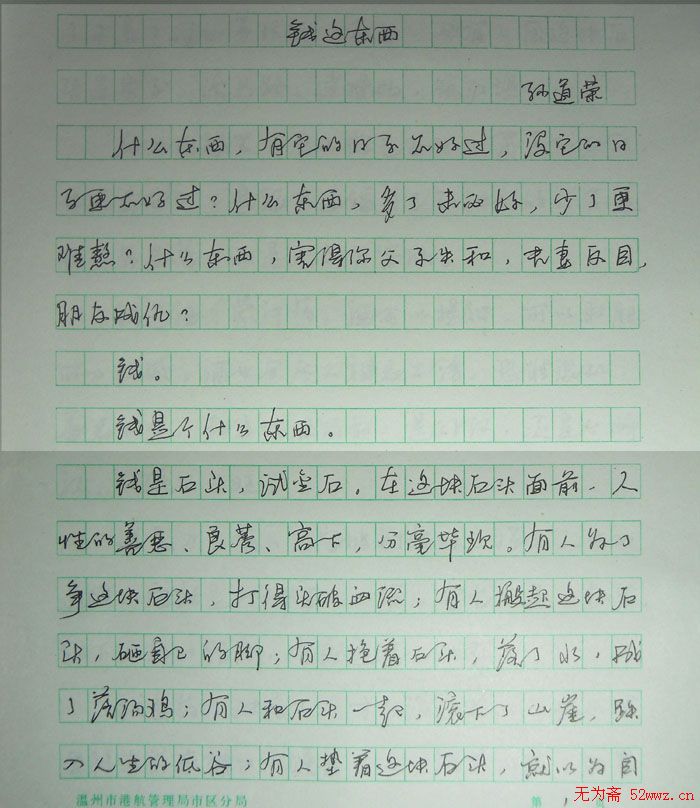 钱这东西
孙道荣
什么东西，有它的日子不好过，没它的日
子更不好过？什么东西，多了未必好，少了更
难熬？什么东西，害得你父子失和，夫妻反目，
朋友成仇？
钱。
钱是个什么东西。
钱是石头，试金石。在这块石头面前，人
性的善恶、良莠、高下，分毫毕现。有人为了
争这块石头，打得头破血流；有人搬起这块石
头，砸自己的脚；有人抱着石头，落了水，成
了落汤鸡；有人和石头一起，滚下了山崖，跌
入人生的低谷；有人垫着这块石头，就以为自
温州市港航管理局市区分局
第
无为斋 52wwz.cn